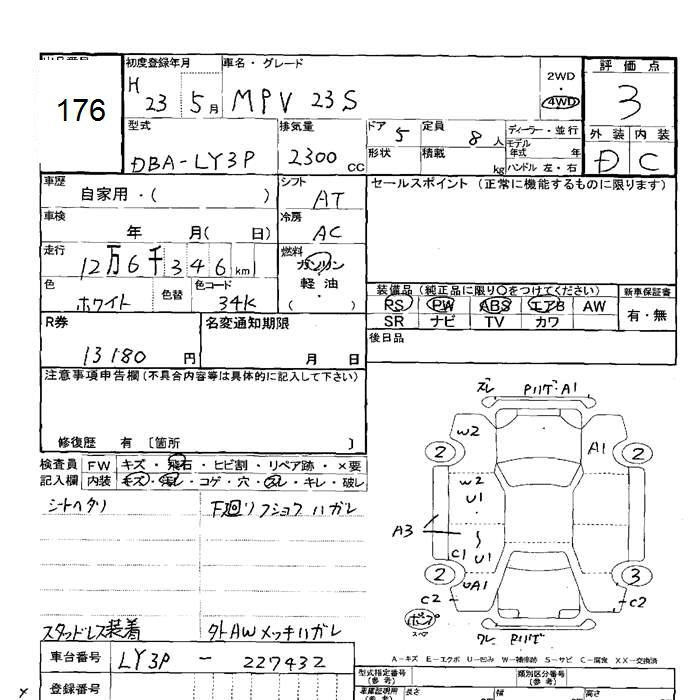 176
初度登録年月 車名・グレード
H 23 5月 MPV 23S
2WD
・
4WD
評価点
3
外装 内装
D C
型式 排気量 ドア 5 定員 8人 ディーラー・並行
DBA-LY3P 2300 CC 形状 積載 kg
モデル年式 年
ハンドル 左・右
車歴 シフト セールスポイント (正常に機能するものに限ります)
自家用・( ) AT
車検 冷房
年 月( 日) AC
走行 燃料
12万6千346km ガソリン・軽油・( )
色 色替 色コード
ホワイト 34K
装備品 (純正品に限り○をつけてください) 新車保証書
PS PW ABS エアB AW 有・無
SR ナビ TV カワ
R券 名変通知期限 後日品
13180円 月 日
注意事項申告欄 (不具合内容等は具体的に記入して下さい)
修復歴 有 〔箇所 〕
検査員 FW キズ・飛石・ヒビ割・リペア跡・×要
記入欄 内装 キズ・コゲ・穴・スレ・キレ・破レ
シートヘタリ 下廻りフショクハガレ
スタッドレス装着 タトAWメッキハガレ
車台番号 LY3P - 227432
登録番号
ズレ Pハゲ・A1
W2 A1
2 2
W2
U1
A3
C1 U1
2 3
UA1
C2 C2
スペア
ワレ Pハゲ
A-キズ E-エクボ U-凹み W-補修跡 S-サビ C-腐食 XX-交換済
型式指定番号 (参考) 類別区分番号 (参考)
長さ 幅 高